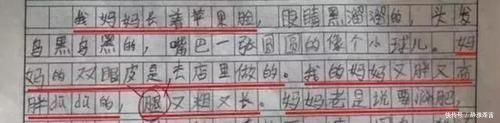 我妈妈长着苹果脸，眼睛黑溜溜的，头发
乌黑乌黑的，嘴巴一张圆圆的像个小球儿。妈
妈的双眼皮是去店里做的。我的妈妈又胖又高
胖嘟嘟的，腿又粗又长。妈妈老是说要减肥，
快传号/静雅斋言